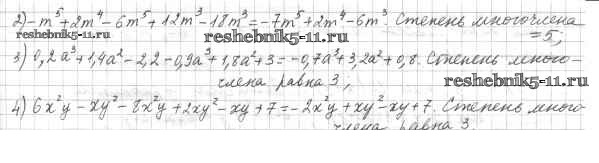 2) -m⁵+2m⁴-6m⁵+12m³-18m³=-7m⁵+2m⁴-6m³. Степень многочлена
=5;
reshebnik5-11.ru
reshebnik5-11.ru
3) 0,2a³+1,4a²-2,2-0,9a³+1,8a²+3=-0,7a³+3,2a²+0,8. Степень много-
члена равна 3;
reshebnik5-11.ru
4) 6x²y-xy²-8x²y+2xy²-xy+7=-2x²y+xy²-xy+7. Степень много-
члена равна 3.